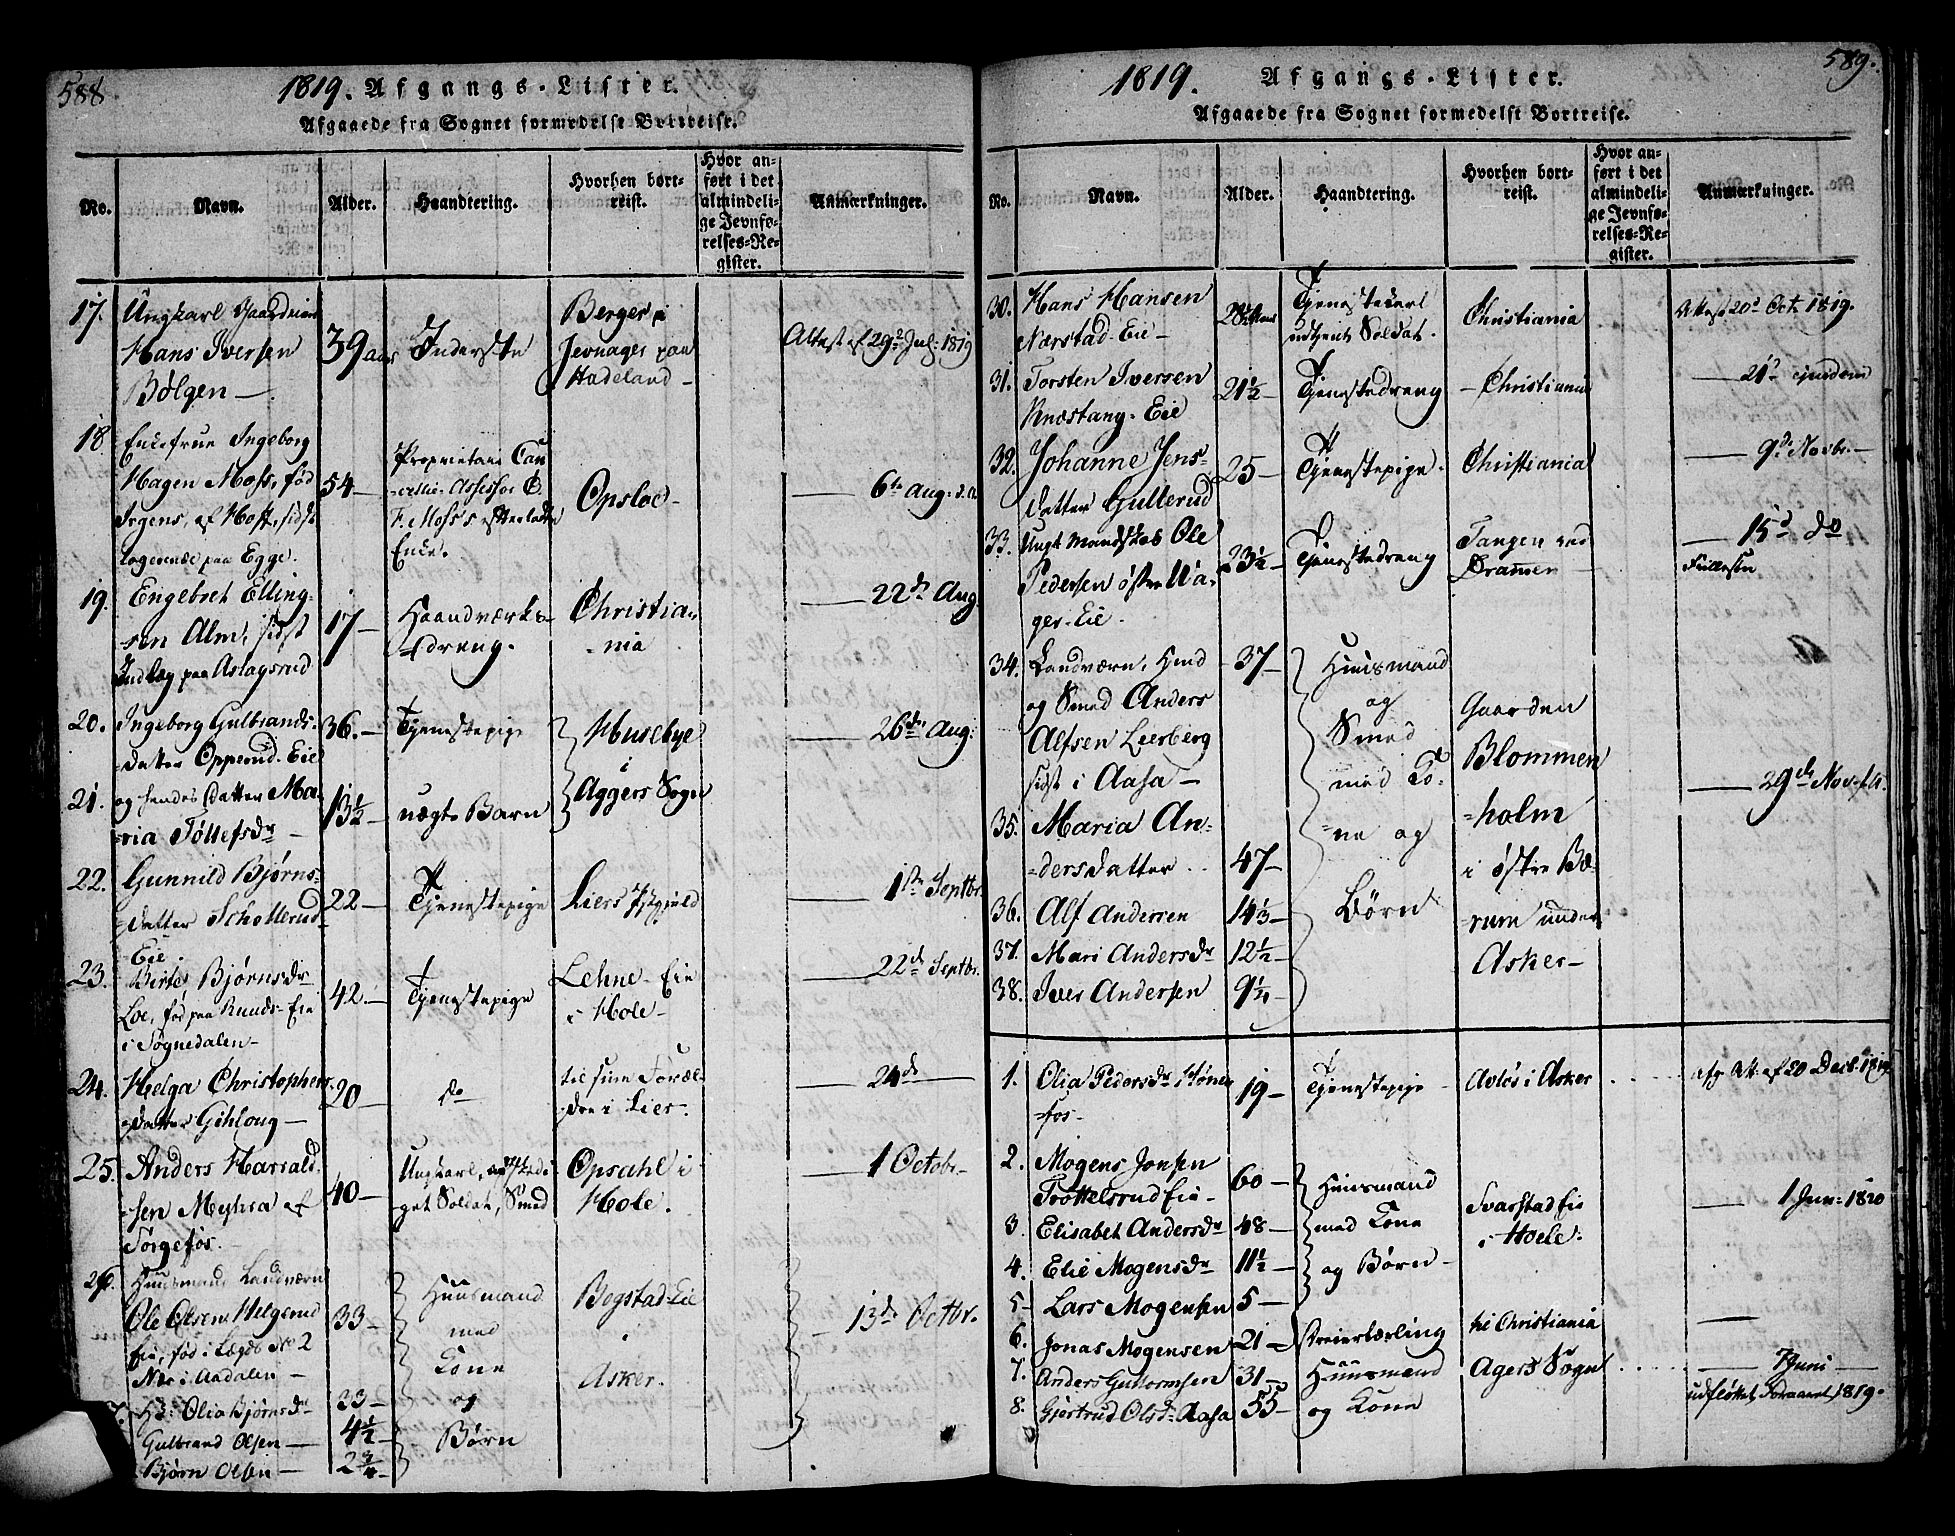 588
1819. Afgangs-Lister.
Afgaaede fra Sognet formedelst Bortreise.
No. Navn. Alder. Haandtering. Hvorhen bortreist. Hvor anført i det almindelige Jevnførelses-Register. Anmærkninger.
17. Ungkarl
Hans Iversen
Bølgen —
39 aar Inderste
Berger i
Jevnager paa
Hadeland —
Attest af 29de Jul: 1819
18 Enkefrue Ingeborg
Hagen Moss, fød
Irgens, af Moss, sidst
logerende paa Egge.
54 —
Proprietair Can-
cellie-Assessor
F. Moss's efterladte
Enke.
Opsloe —
— 6te Aug: d.A.
19. Engebret Elling-
sen Alm, sidst
Indlag paa Aslagsrud
17 —
Haandværks-
dreng.
Christia-
nia
— 22de Aug.
20. Ingeborg Gulbrands-
datter Opperud-Eie
36. — Tjenestepige
Husebye
i
Aggers Sogn
— 26de Aug:
21. og hendes Datter Ma-
ria Tollefsdr —
13½ — uægte Barn
22. Gunnild Bjørns-
datter Schollerud-
Eie.
22 — Tjenestepige Liers Præstegield
— 1ste Septbr.
23. Birte Bjørnsdr
Loe, fød paa Ruuds-Eie
i Sognedalen —
42. — Tjenestepige
Lehne-Eie
i Hole —
— 22de Septbr.
24. Helga Christophers-
datter Gihlong —
20 — do
til sine Foræl-
dre i Lier —
— 24de —
25. Anders Harrald-
sen Myhra af
Sørgefos.
40 —
Ungkarl,
get Soldat, Smed
Opsahl i
Hole.
— 1 Octobr.
26. Huusmand Landværn
Ole Olsen Helgerud
Eie, fød i Lægds No 2
Næs i Aadalen —
33 —
Huusmand
med
Kone
og
Børn
Bogstad-Eie
i
Asker.
— 13de Octbr.
H: Olia Bjørnsdr 33 —
Gulbrand Olsen — 4½ —
Bjørn Olsen — 2¾ —
589.
1819. Afgangs-Lister.
Afgaaede fra Sognet formedelst Bortreise.
No. Navn. Alder. Haandtering. Hvorhen bortreist. Hvor anført i det almindelige Jevnførelses-Register. Anmærkninger.
30. Hans Hansen
Nærstad-Eie —
28½
Tjenestekarl
udtjent Soldat.
Christiania
Attest 20de Oct. 1819.
31. Torsten Iversen
Knæstang-Eie
21½ — Tjenestedreng — Christiania
— 21de ejusdem
32. Johanne Jens-
datter Gullerud
25 — Tjenestepige. Christiania
— 9de Novbr. —
33. Ungt Mandskab Ole
Pedersen østre Va-
ger-Eie.
23½ — Tjenestedreng
Tangen ved
Drammen —
— 15de do
34. Landværn,
og Smed Anders
Alfsen Lierberg
sidst i Aasa —
37 —
Huusmand
og
Smed
med Ko-
ne og
Børn
Gaarden
Blommen-
holm
i østre Bæ-
rum under
Asker —
— 29de Nov. d.A.
35. Maria An-
dersdatter . . 47 —
36. Alf Andersen 14⅓ —
37. Mari Andersdr 12½ —
38. Iver Andersen 9¼ —
1. Olia Pedersdr Høne-
fos —
19 — Tjenestepige Avløs i Asker . . . . afg. Att. af 20 Decb. 1819
2. Mogens Jonsen
Trøttelsrud Eie —
60 —
Huusmand
med Kone
og Børn —
Svarstad Eie
i Hoele.
— 1 Jun: 1820
3. Elisabet Andersdr 48 —
4. Elie Mogensdr 11½ —
5 — Lars Mogensen 5 —
6. Jonas Mogensen 21 — Dreierlærling til Christiania —
7. Anders Guttormsen 31 — Huusmand Agers Sogn . . . . — 7 Juni —
8. Gjertrud Olsdr Aasa 55 — og Kone
udfløttet Foraaret 1819.